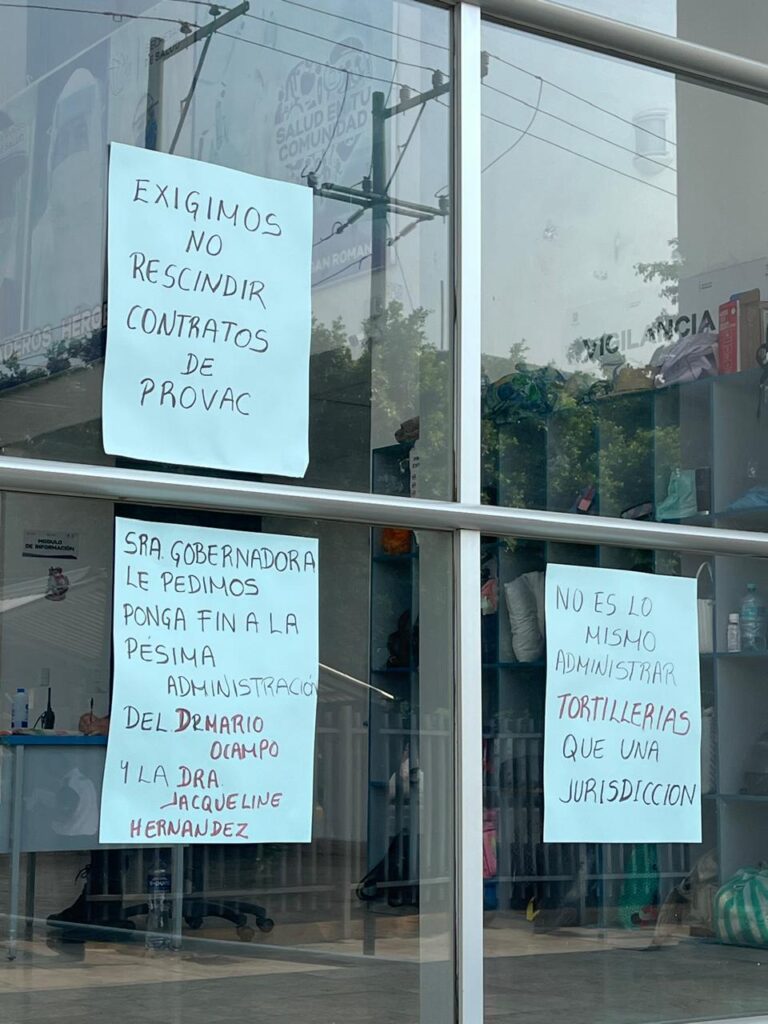 SALUD EN TU
COMUNIDAD
EXIGIMOS
NO
RESCINDIR
CONTRATOS
DE
PROVAC
VIGILANCIA
MODULO
DE INFORMACIÓN
SRA. GOBERNADORA
LE PEDIMOS
PONGA FIN A LA
PÉSIMA
ADMINISTRACIÓN
DEL DR MARIO
OCAMPO
Y LA DRA.
JACQUELINE
HERNANDEZ
NO ES LO
MISMO
ADMINISTRAR
TORTILLERIAS
QUE UNA
JURISDICCION